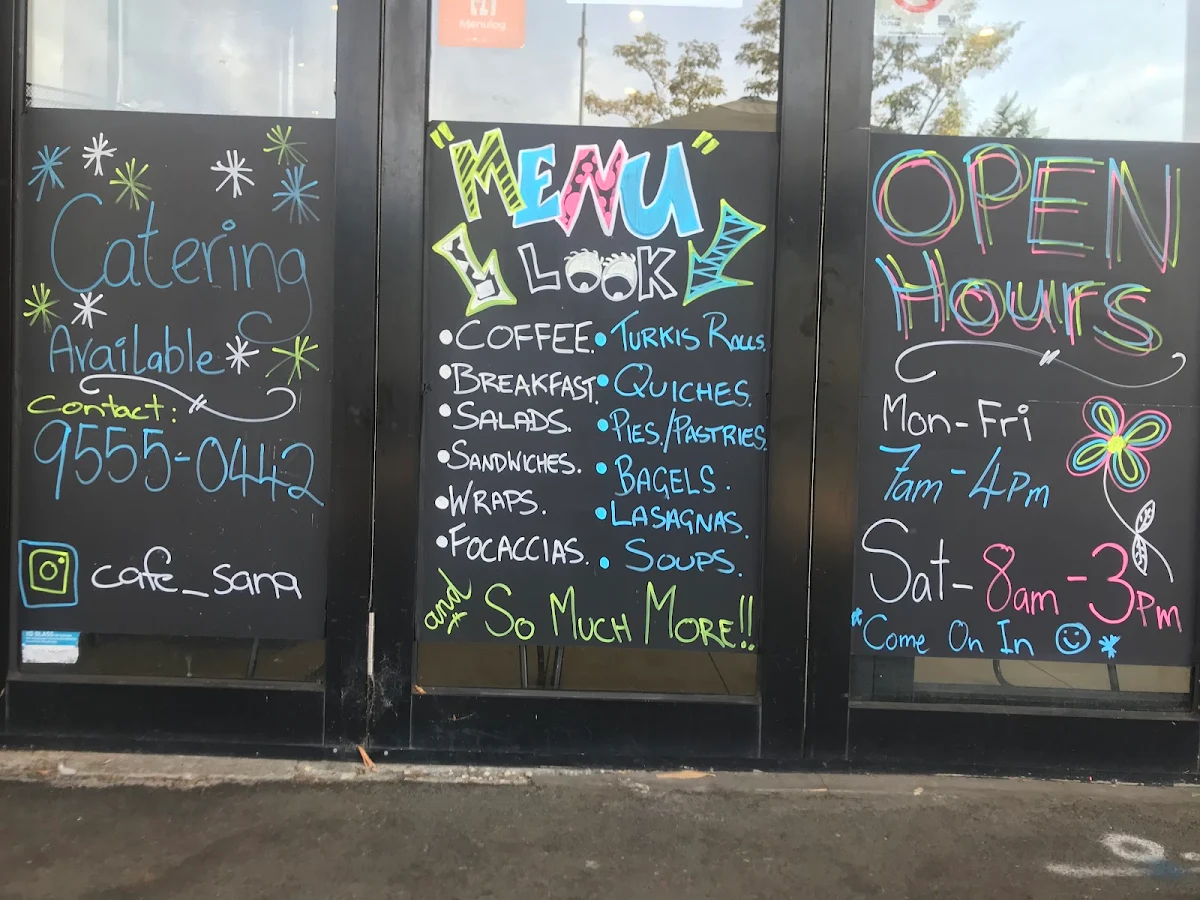 Catering
Available
Contact:
9555-0442
cafe_sana
3D GLASS
Menulog
"MENU"
LOOK
• COFFEE.
• BREAKFAST.
• SALADS.
• SANDWICHES.
• WRAPS.
• FOCACCIAS.
• TURKIS ROLLS.
• QUICHES.
• PIES./PASTRIES.
• BAGELS.
• LASAGNAS.
• SOUPS.
and SO MUCH MORE!!
OPEN
Hours
Mon-Fri
7am-4Pm
Sat-8am-3Pm
*Come On In ☺*